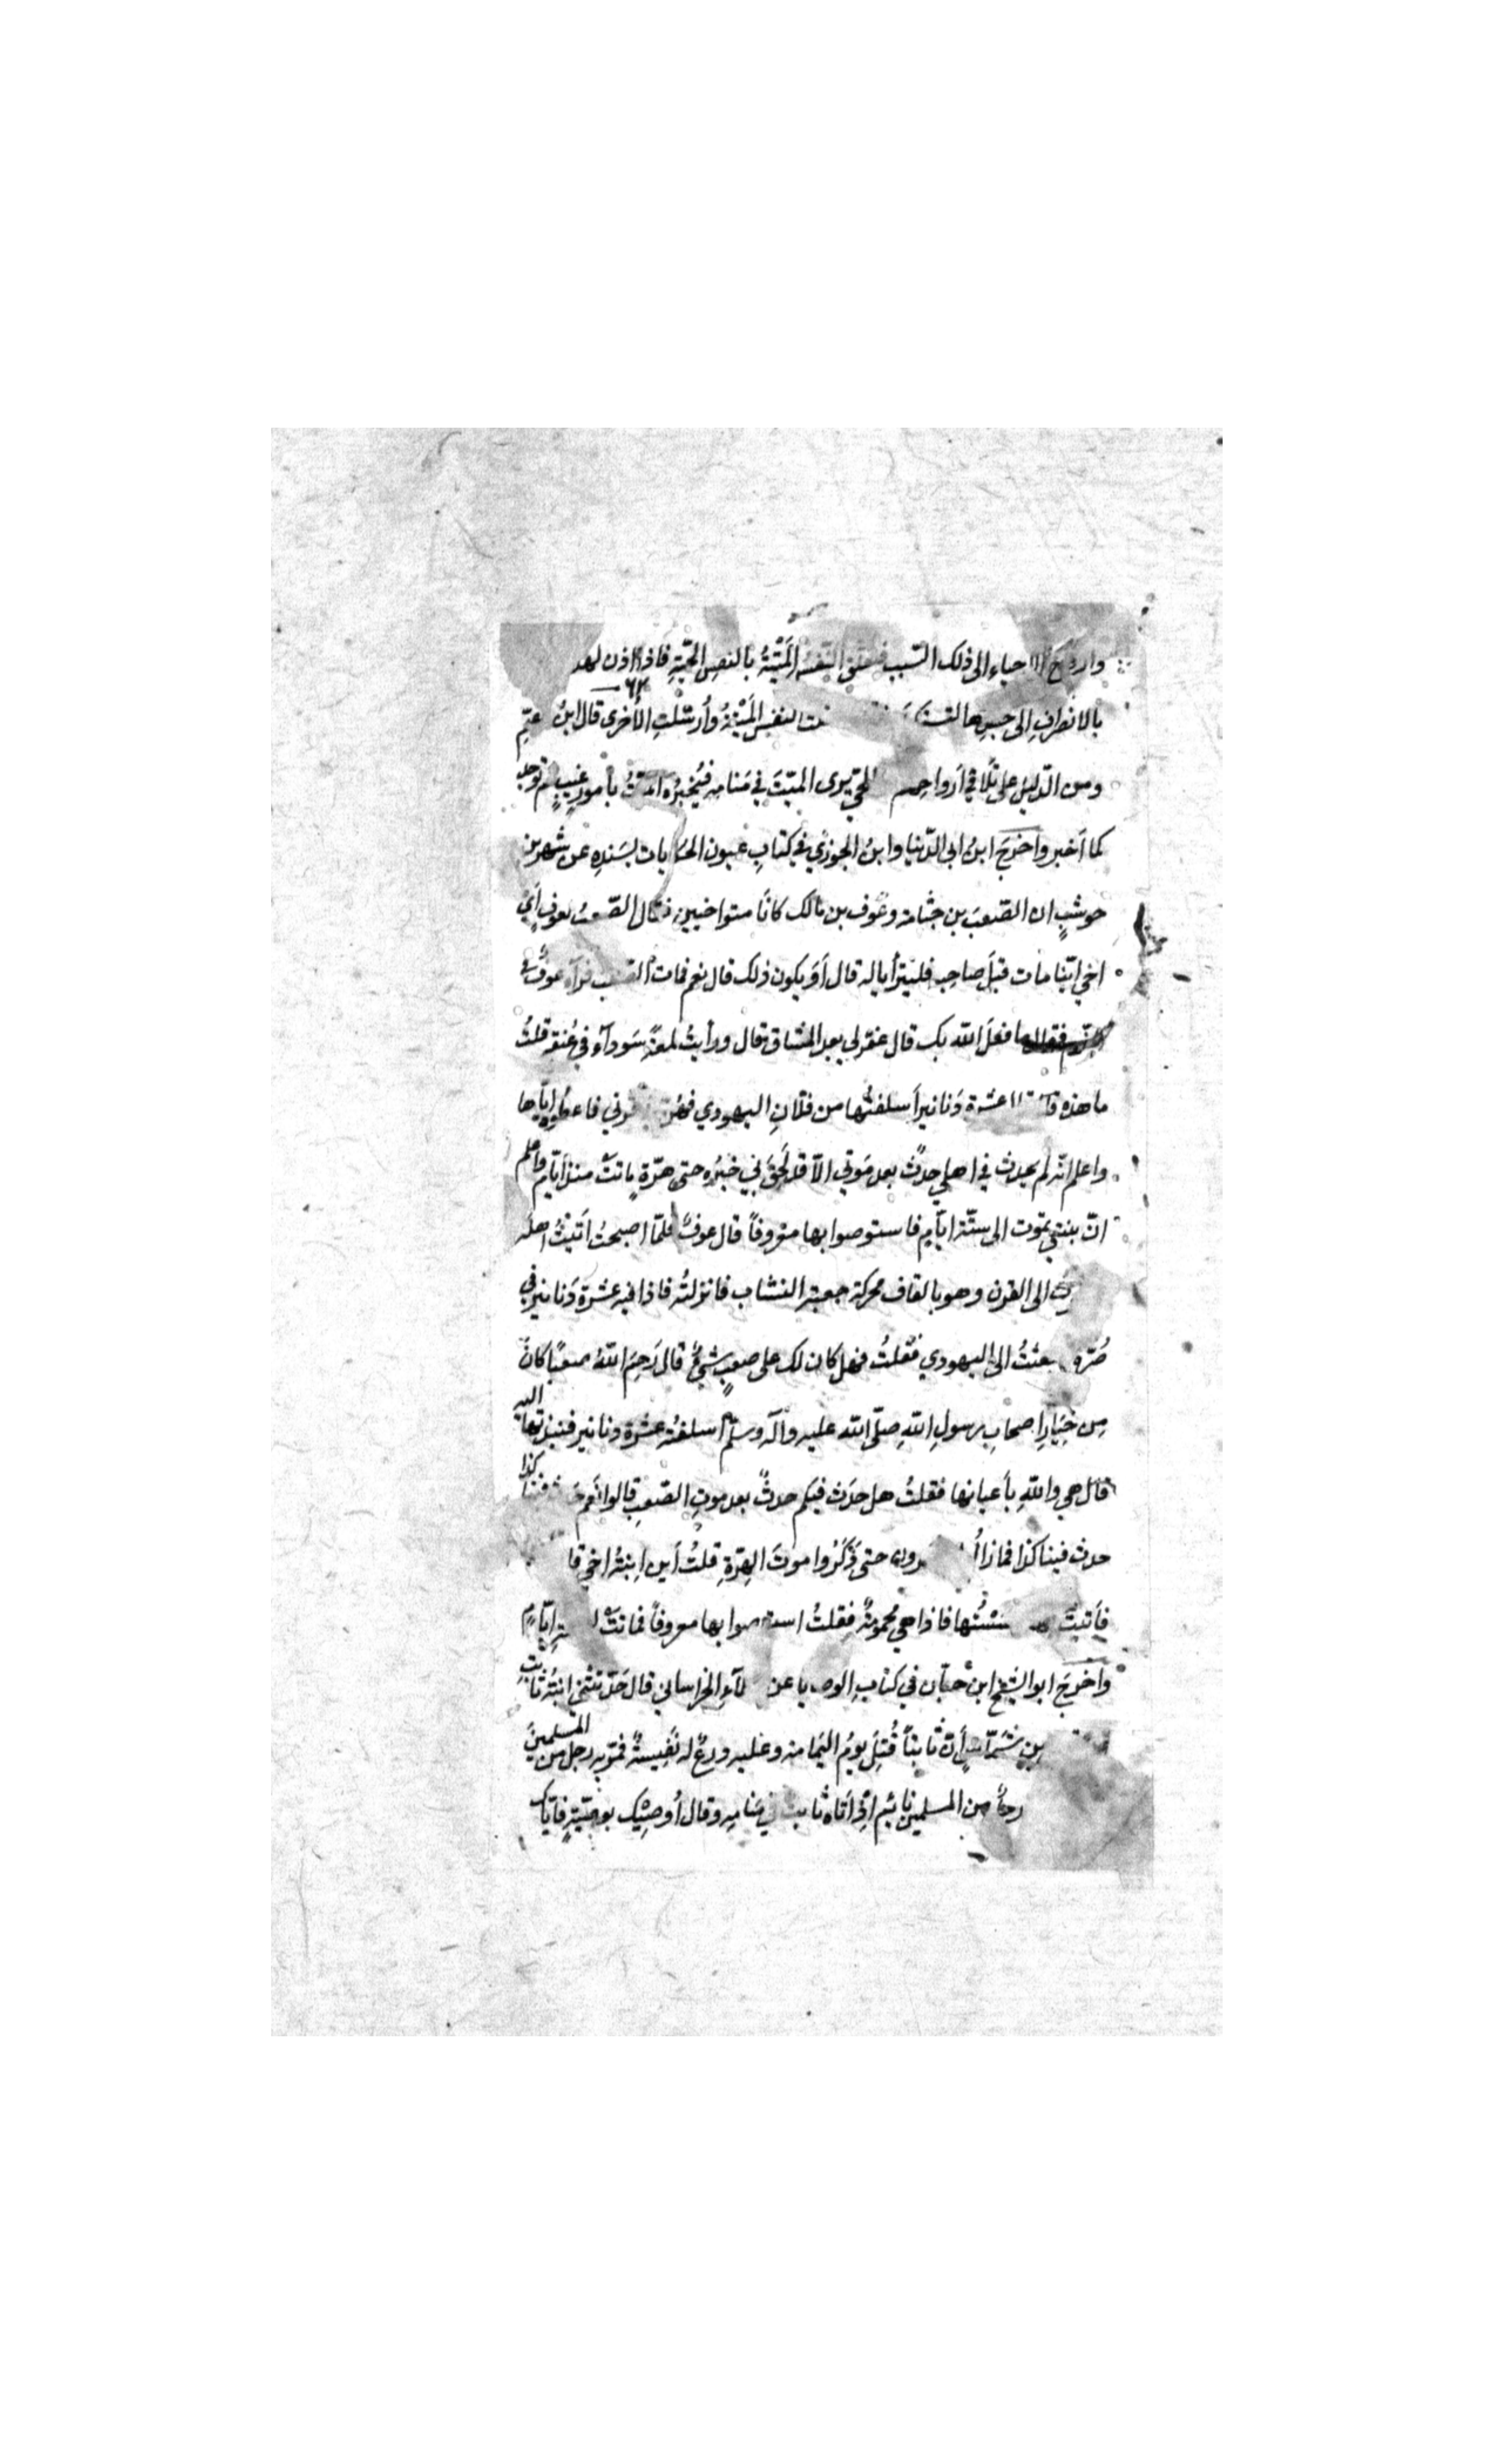 وارواح الاحياء الى ذلك السّبب فتعلق النّفسُ المَيّتةُ بالنفسِ الحَيّةِ فاذا اذن لهذه
بالانصرافِ الى جسدها النفسُ المَيّتةُ وأُرسلتِ الأُخرى قال ابنُ القيّم
ومن الدّليل على تَلاقي اَرواحهم الحيّ يرى الميّتَ في مَنامِه فيُخبرُه الميّتُ بأمورِ غيبٍ ثم توجد
كما اَخبر واَخرجَ ابنُ ابي الدّنيا وابنُ الجوزي في كتابِ عيون الحكايات بسَندِه عن شهر بن
حوشبٍ ان الصّعبَ بن جثامة وعوف بن مالك كانا متواخيين فقال الصّعبُ لعوفٍ اَيْ
اخي ايّنا مات قبلَ صاحبه فليترأيا له قال اَوَ يكون ذلك قال نعم فمات الصّعب فرآه عوفٌ في
فقال ما فعلَ الله بك قال غفر لي بعد المشاق قال ورأيتُ لمعةً سَودآء في عُنقه قلتُ
ما هذه قال عشرة دَنانير اَسلفتُها من فلانِ اليهودي فهُنّ قرني فاعطوه ايّاها
واعلم انّه لم يحدث في اهلي حدثٌ بعد مَوتي الاّ قد لَحِقَ بي خبرُه حتى هرّةٍ ماتتْ منذ ايّام واعلم
انّ بنتي تموت الى ستّة ايّامٍ فاستوصوا بها معروفاً قال عوفٌ فلمّا اصبحتُ اَتيتُ اهله
الى القرن وهو بالقاف محركة جعبة النشاب فانزلتُه فاذا فيه عشرة دَنانير في
صُرّه بعثتُ الى اليهودي فقلتُ فهل كان لك على صعبٍ شيءٌ قال رَحِمَ اللهُ صعباً كانَ
مِن خِيَارِ اصحابِ رسولِ اللهِ صلّى الله عليه وآله وسلّم اسلفتُه عشرة دنانير فنبذتها اليه
قال هي واللهِ بأعيانها فقلتُ هل حدَث فيكم حدثٌ بعد موتِ الصّعبِ قالوا نَعم حدث فينا كذا
حدث فينا كذا فمازالُوا حتى ذَكَرُوا موتَ الهِرّةِ قلتُ اَين اِبنةُ اخي قا
فأتيتُ فمسستُها فاذا هي محمومةٌ فقلتُ استوصوا بها معروفاً فماتتْ لستة ايّامٍ
واَخرجَ ابو الشيخ ابن حبّان في كتابِ الوصايا عن عطآءِ الخراساني قال حَدّثتني ابنةُ ثابتِ
بن شمّاس أنّ ثابتاً قُتِلَ يومُ اليَمامة وعليه درعٌ له نَفِيسةٌ فمرّ به رجل من المسلمينَ
رجلٌ من المسلمين نائم اذ اَتاه ثابت في مَنامِه وقال أُوصيك بوصيّةٍ فاَيّاك